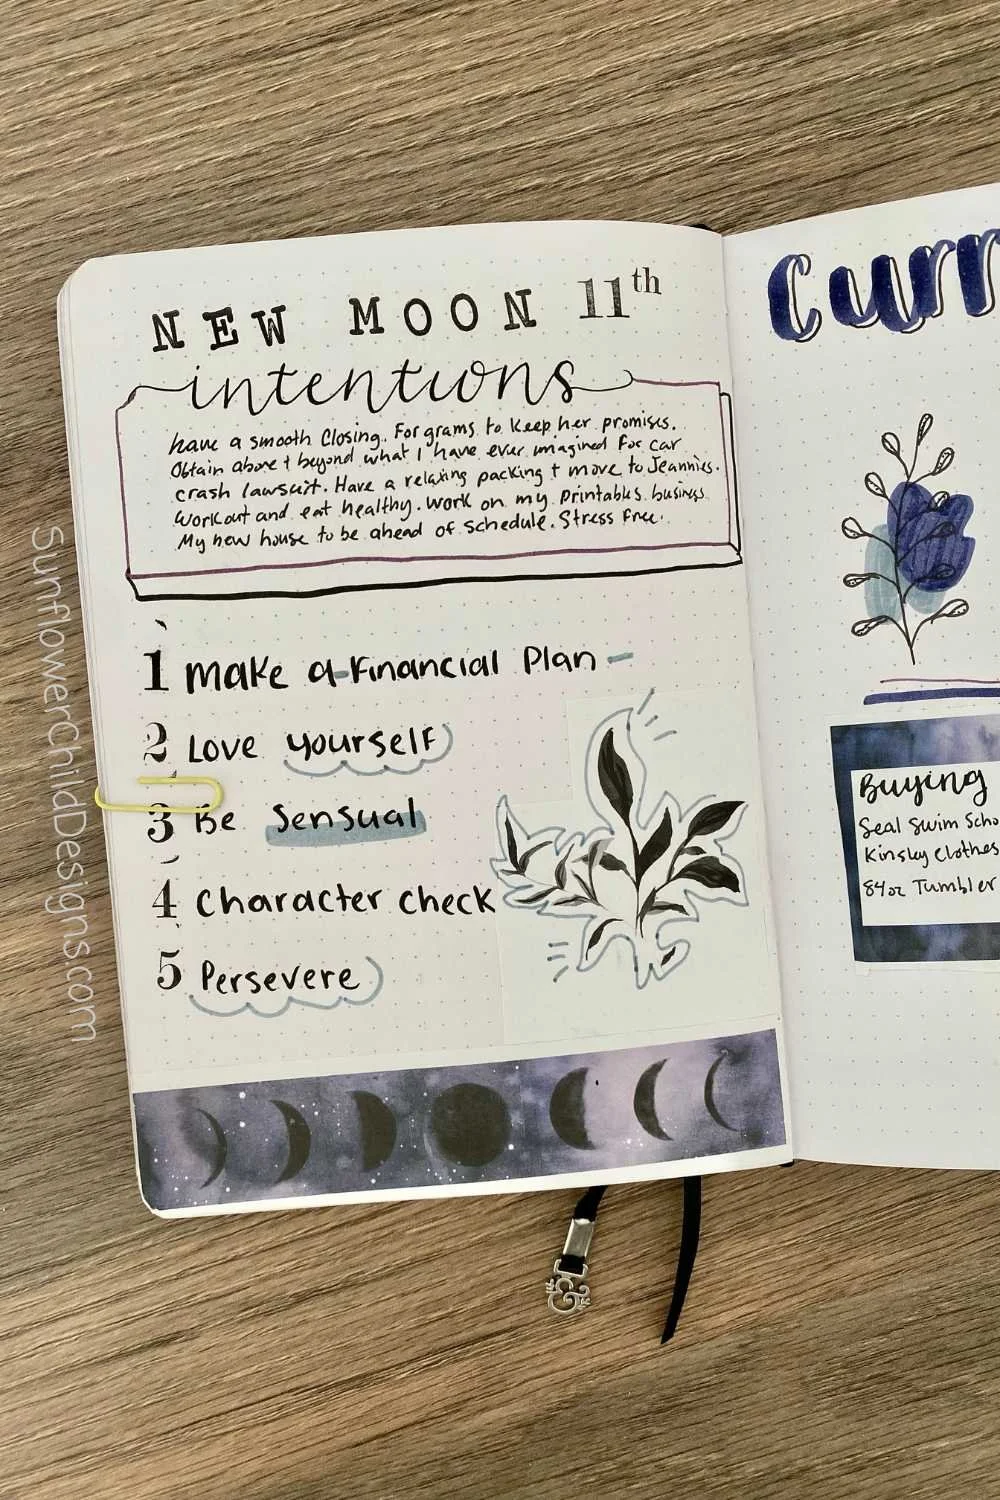 NEW MOON 11th
intentions
have a smooth closing. For grams to keep her promises.
Obtain above + beyond what I have ever imagined for car
crash lawsuit. Have a relaxing packing + move to Jeannies.
Workout and eat healthy. Work on my printables business
My new house to be ahead of schedule. Stress free.
1 make a Financial Plan
2 Love yourself
3 Be Sensual
4 Character check
5 Persevere
Curr
Buying
Seal Swim Scho
Kinsley Clothes
84oz Tumbler
SunflowerChildDesigns.com